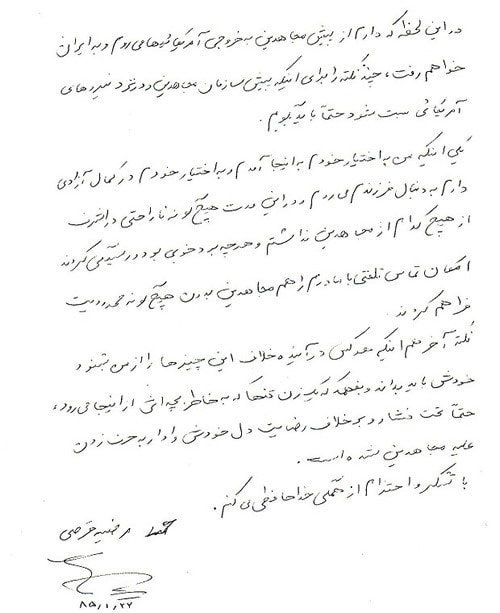 در این لحظه که دارم از پیش مجاهدین به خروجی آمریکائیها می روم و به ایران
خواهم رفت، چند نکته را برای اینکه پیش سازمان مجاهدین و در نزد نیروهای
آمریکائی ثبت شود حتماً باید بگویم.
یکی اینکه من به اختیار خودم به اینجا آمدم و به اختیار خودم در کمال آزادی
دارم به دنبال فرزندم می روم و در این مدت هیچ گونه ناراحتی در اشرف
از هیچ کدام از مجاهدین نداشتم و هرچه بود خوبی بود و رسیدگی کردند
امکان تماس تلفنی با مادرم را هم مجاهدین بدون هیچ گونه محدودیت
فراهم کردند
نکته آخر هم اینکه هر کس در آینده خلاف این چیزها را از من بشنود
خودش باید بداند و بفهمد که یک زن تنها که به خاطر بچه اش از اینجا می رود،
حتماً تحت فشار و بر خلاف رضایت دل خودش وادار به حرف زدن
علیه مجاهدین شده است.
با تشکر و احترام از همگی خداحافظی می کنم.
مرضیه قرصی
۸۵/۱/۲۲